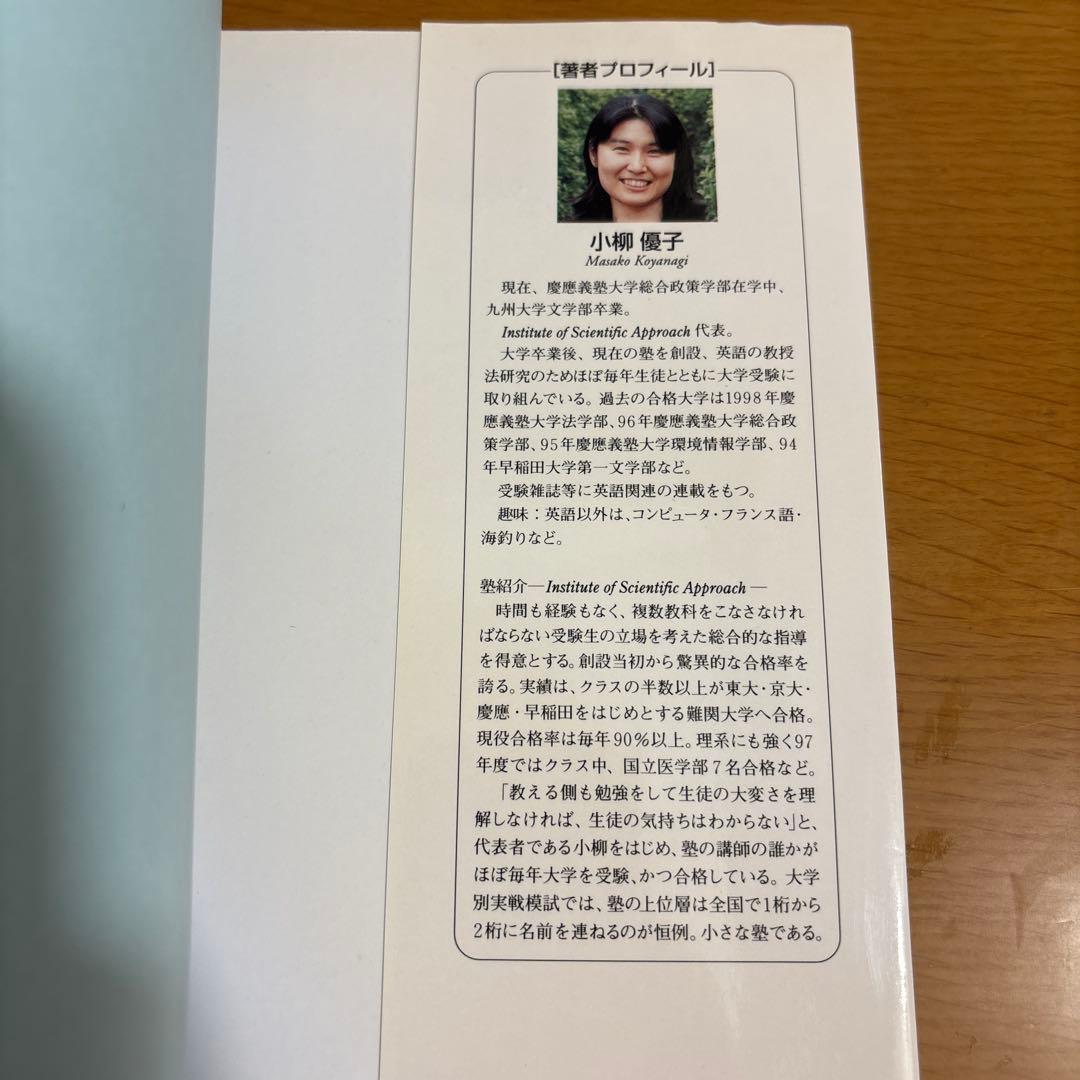 [著者プロフィール]
小柳 優子
Masako Koyanagi
現在、慶應義塾大学総合政策学部在学中、
九州大学文学部卒業。
Institute of Scientific Approach 代表。
大学卒業後、現在の塾を創設、英語の教授
法研究のためほぼ毎年生徒とともに大学受験に
取り組んでいる。過去の合格大学は1998年慶
應義塾大学法学部、96年慶應義塾大学総合政
策学部、95年慶應義塾大学環境情報学部、94
年早稲田大学第一文学部など。
受験雑誌等に英語関連の連載をもつ。
趣味：英語以外は、コンピュータ・フランス語・
海釣りなど。
塾紹介―Institute of Scientific Approach―
時間も経験もなく、複数教科をこなさなけれ
ばならない受験生の立場を考えた総合的な指導
を得意とする。創設当初から驚異的な合格率を
誇る。実績は、クラスの半数以上が東大・京大・
慶應・早稲田をはじめとする難関大学へ合格。
現役合格率は毎年90％以上。理系にも強く97
年度ではクラス中、国立医学部7名合格など。
「教える側も勉強をして生徒の大変さを理
解しなければ、生徒の気持ちはわからない」と、
代表者である小柳をはじめ、塾の講師の誰かが
ほぼ毎年大学を受験、かつ合格している。大学
別実戦模試では、塾の上位層は全国で1桁から
2桁に名前を連ねるのが恒例。小さな塾である。